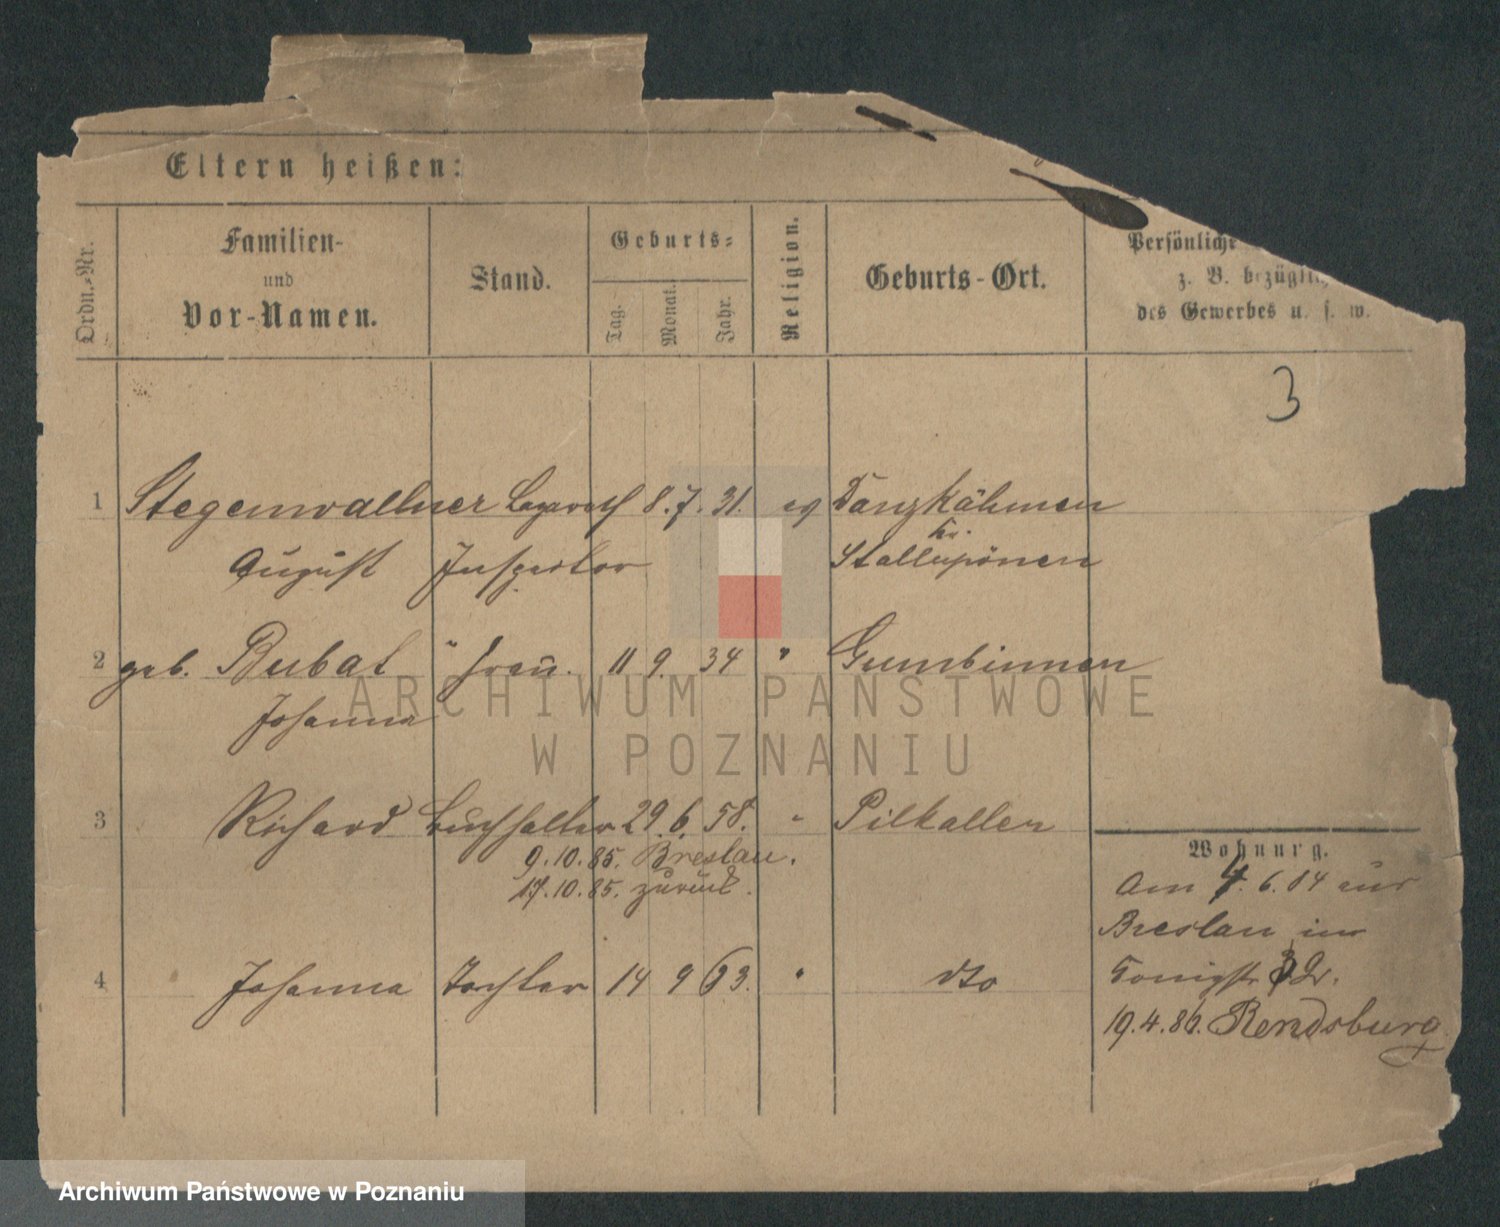 Eltern heißen:
Ordn.-Nr.
Familien-
und
Vor-Namen.
Stand.
Geburts-
Tag.
Monat.
Jahr.
Religion.
Geburts-Ort.
Persönliche
z. B. bezügli
des Gewerbes u. s. w.
3
1 Stegenwallner Lazareth 8. 7. 31. ev Danzkähmen
Kr.
August Inspector Stallupönen
2 geb. Bubat " Frau. 11 9. 34 " Gumbinnen
Johanna
3 Richard Buchhalter 29. 6. 58. " Pillkallen
9.10.85. Breslau.
17.10.85. zurück.
Wohnung.
Am 4. 6. 84 aus
Breslau in
4 Johanna Tochter 14 9 63. " dto
19.4.86. Rendsburg
ARCHIWUM PAŃSTWOWE
W POZNANIU
Archiwum Państwowe w Poznaniu